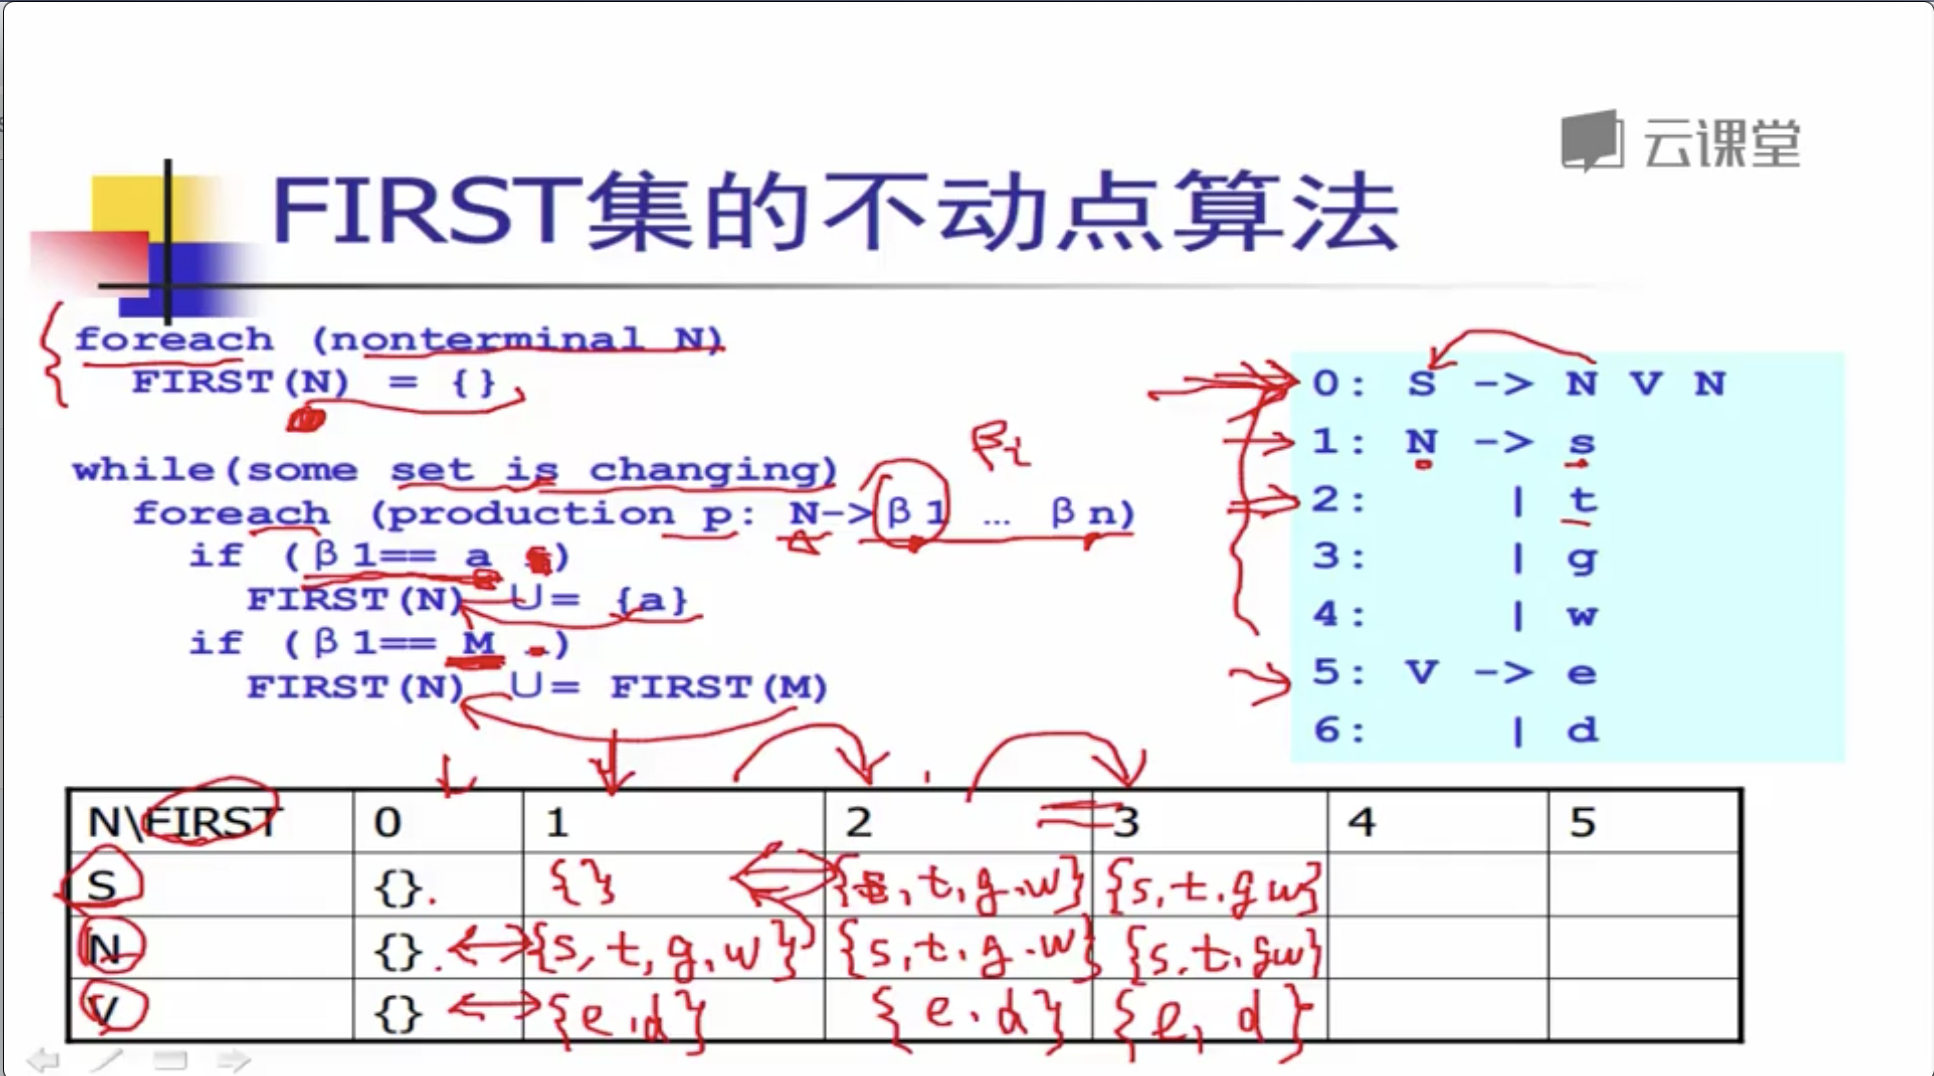 云课堂
FIRST集的不动点算法
foreach (nonterminal N)
FIRST(N) = {}
while(some set is changing)
foreach (production p: N->β1 … βn)
if (β1== a
)
FIRST(N) ∪= {a}
if (β1== M
)
FIRST(N) ∪= FIRST(M)
βi
0: S -> N V N
1: N -> s
2: | t
3: | g
4: | w
5: V -> e
6: | d
N\FIRST 0 1 2 3 4 5
S {} {} {s,t,g.w} {s,t.gw}
N {} {s,t,g,w} {s,t.g.w} {s.t.gw}
V {} {e.d} {e.d} {e,d}